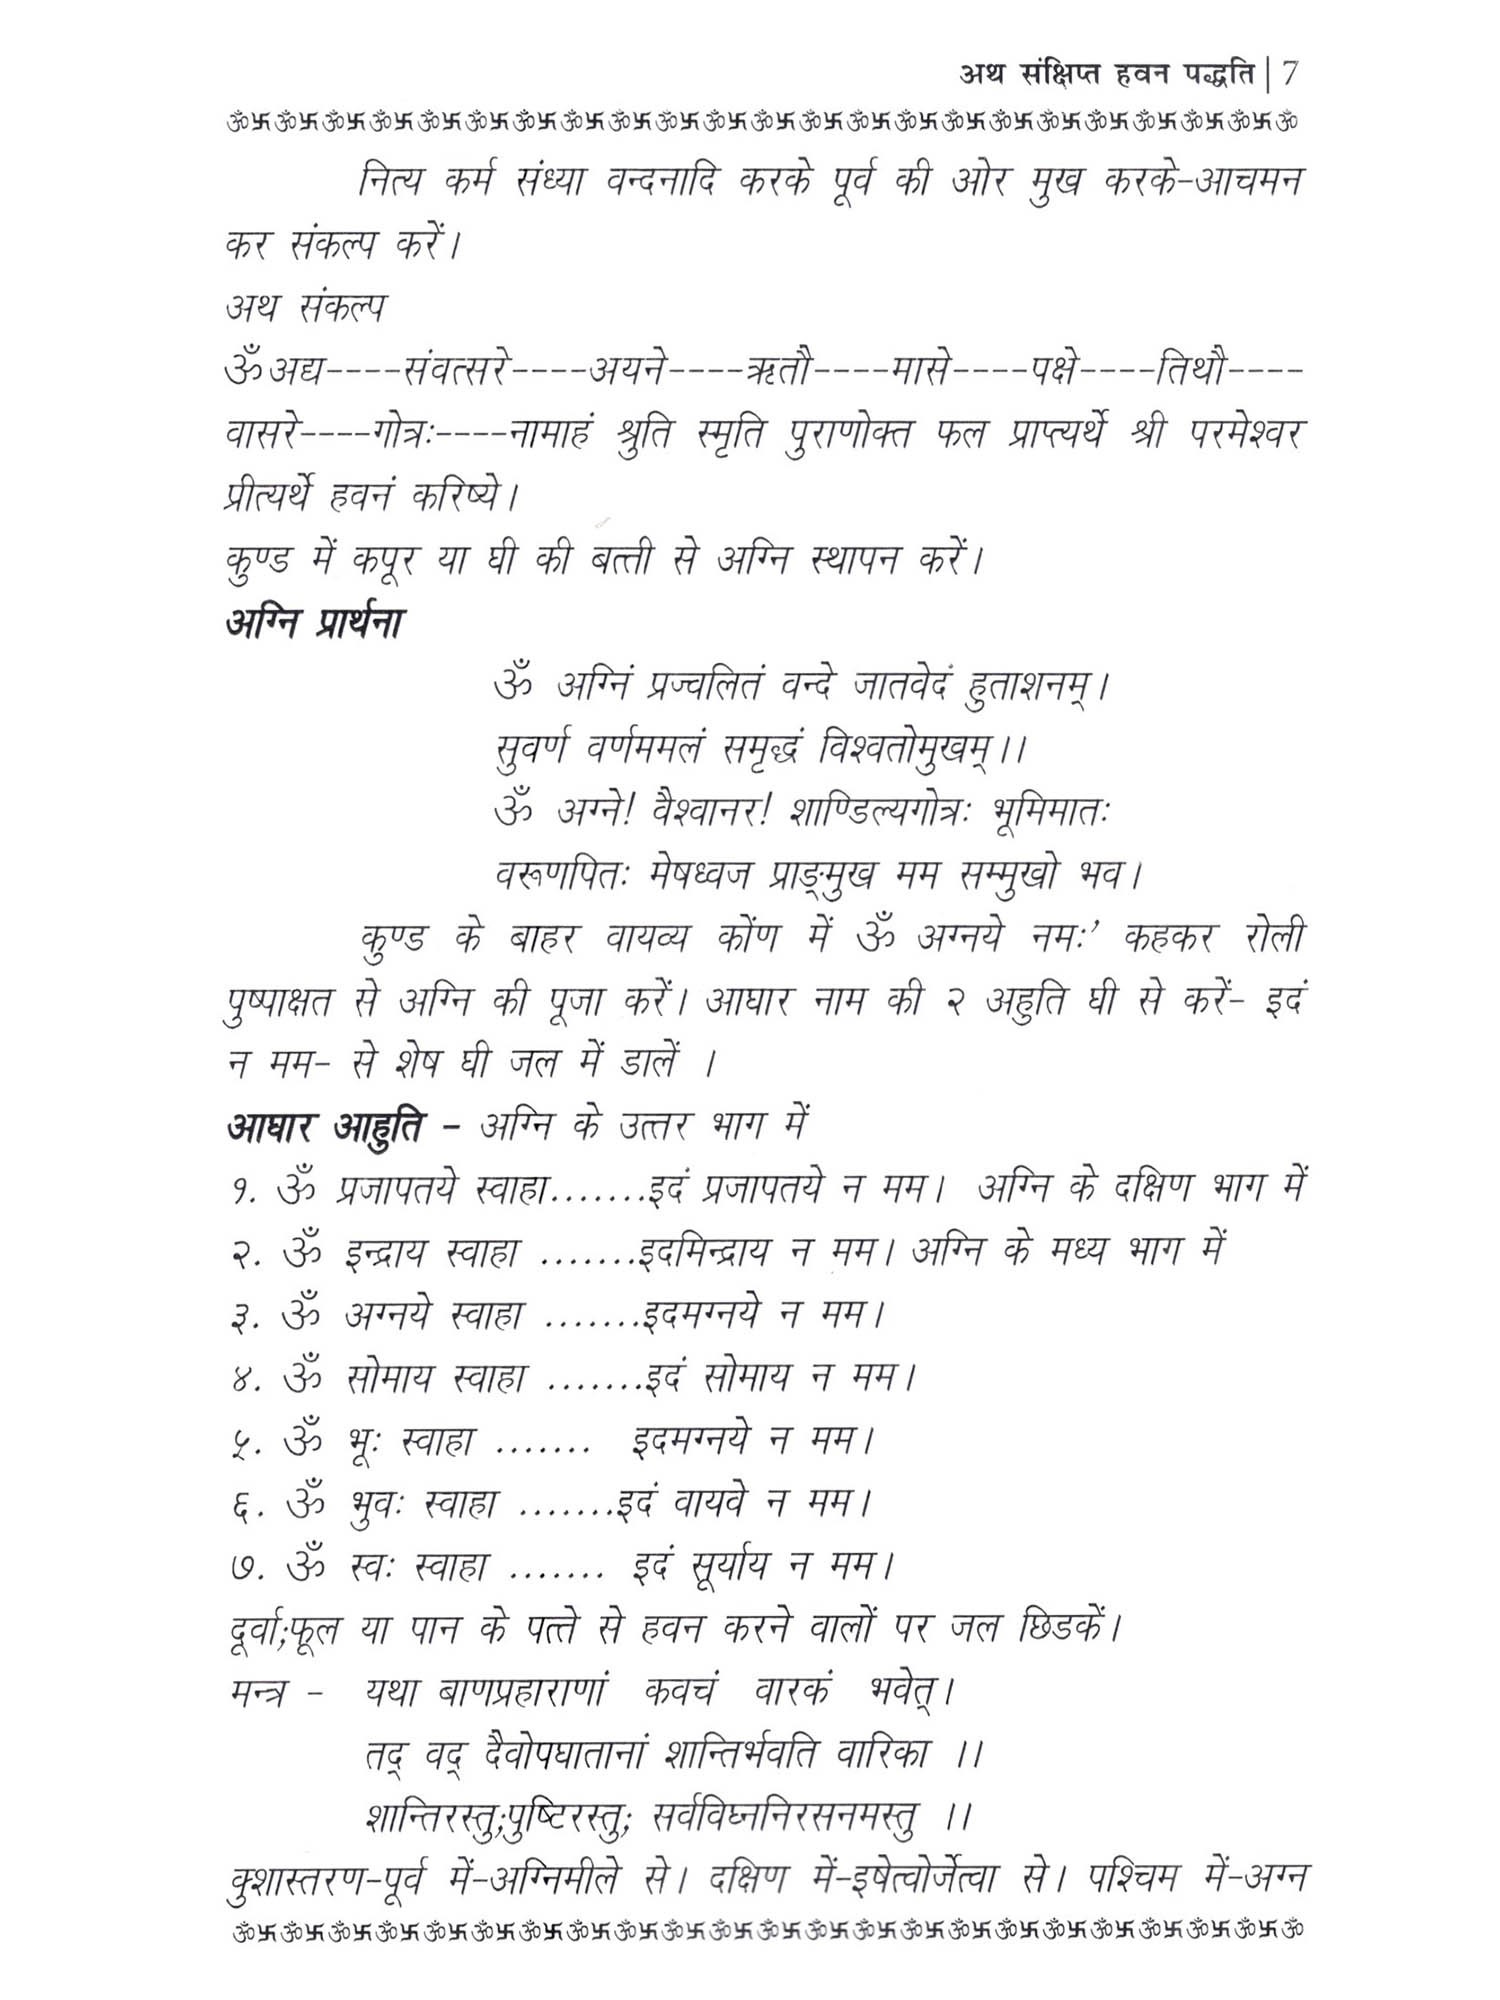 अथ संक्षिप्त हवन पद्धति | 7
ॐ卐ॐ卐ॐ卐ॐ卐ॐ卐ॐ卐ॐ卐ॐ卐ॐ卐ॐ卐ॐ卐ॐ卐ॐ卐ॐ卐ॐ卐ॐ卐ॐ卐ॐ卐ॐ卐ॐ卐ॐ卐ॐ卐ॐ
नित्य कर्म संध्या वन्दनादि करके पूर्व की ओर मुख करके-आचमन
कर संकल्प करें।
अथ संकल्प
ॐअद्य----संवत्सरे----अयने----ऋतौ----मासे----पक्षे----तिथौ----
वासरे----गोत्रः----नामाहं श्रुति स्मृति पुराणोक्त फल प्राप्त्यर्थे श्री परमेश्वर
प्रीत्यर्थे हवनं करिष्ये।
कुण्ड में कपूर या घी की बत्ती से अग्नि स्थापन करें।
अग्नि प्रार्थना
ॐ अग्निं प्रज्वलितं वन्दे जातवेदं हुताशनम्।
सुवर्ण वर्णममलं समृद्धं विश्वतोमुखम्।।
ॐ अग्ने! वैश्वानर! शाण्डिल्यगोत्रः भूमिमातः
वरूणपितः मेषध्वज प्राङ्मुख मम सम्मुखो भव।
कुण्ड के बाहर वायव्य कोंण में ॐ अग्नये नमः’ कहकर रोली
पुष्पाक्षत से अग्नि की पूजा करें। आघार नाम की २ अहुति घी से करें- इदं
न मम- से शेष घी जल में डालें ।
आघार आहुति - अग्नि के उत्तर भाग में
१. ॐ प्रजापतये स्वाहा.......इदं प्रजापतये न मम। अग्नि के दक्षिण भाग में
२. ॐ इन्द्राय स्वाहा .......इदमिन्द्राय न मम। अग्नि के मध्य भाग में
३. ॐ अग्नये स्वाहा .......इदमग्नये न मम।
४. ॐ सोमाय स्वाहा .......इदं सोमाय न मम।
५. ॐ भूः स्वाहा ....... इदमग्नये न मम।
६. ॐ भुवः स्वाहा .......इदं वायवे न मम।
७. ॐ स्वः स्वाहा ....... इदं सूर्याय न मम।
दूर्वा;फूल या पान के पत्ते से हवन करने वालों पर जल छिडकें।
मन्त्र - यथा बाणप्रहाराणां कवचं वारकं भवेत्।
तद् वद् दैवोपघातानां शान्तिर्भवति वारिका ।।
शान्तिरस्तु;पुष्टिरस्तु; सर्वविघ्ननिरसनमस्तु ।।
कुशास्तरण-पूर्व में-अग्निमीले से। दक्षिण में-इषेत्वोर्जेत्वा से। पश्चिम में-अग्न
ॐ卐ॐ卐ॐ卐ॐ卐ॐ卐ॐ卐ॐ卐ॐ卐ॐ卐ॐ卐ॐ卐ॐ卐ॐ卐ॐ卐ॐ卐ॐ卐ॐ卐ॐ卐ॐ卐ॐ卐ॐ卐ॐ卐ॐ